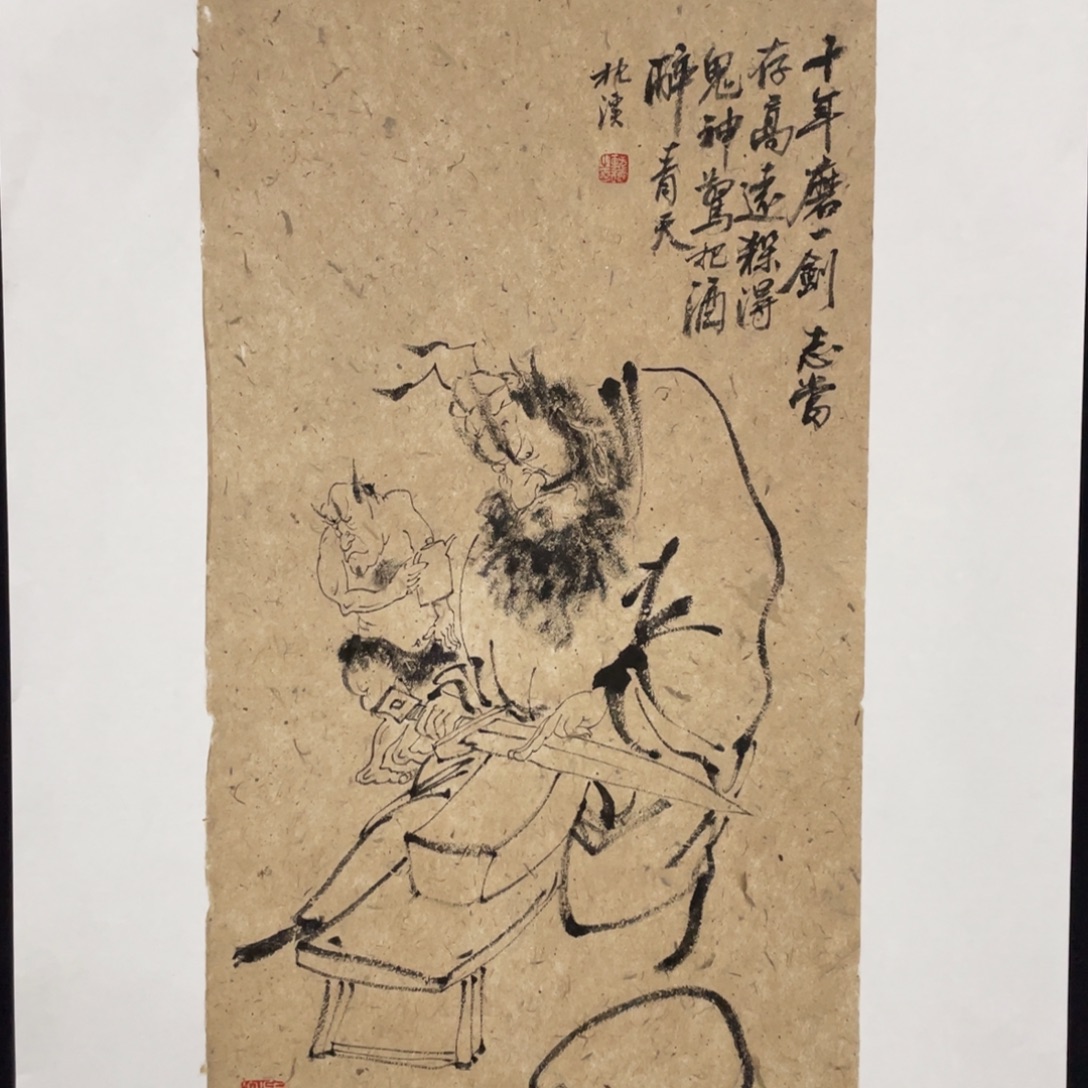 十年磨一劍志當
存高遠殺得
鬼神驚把酒
醉青天